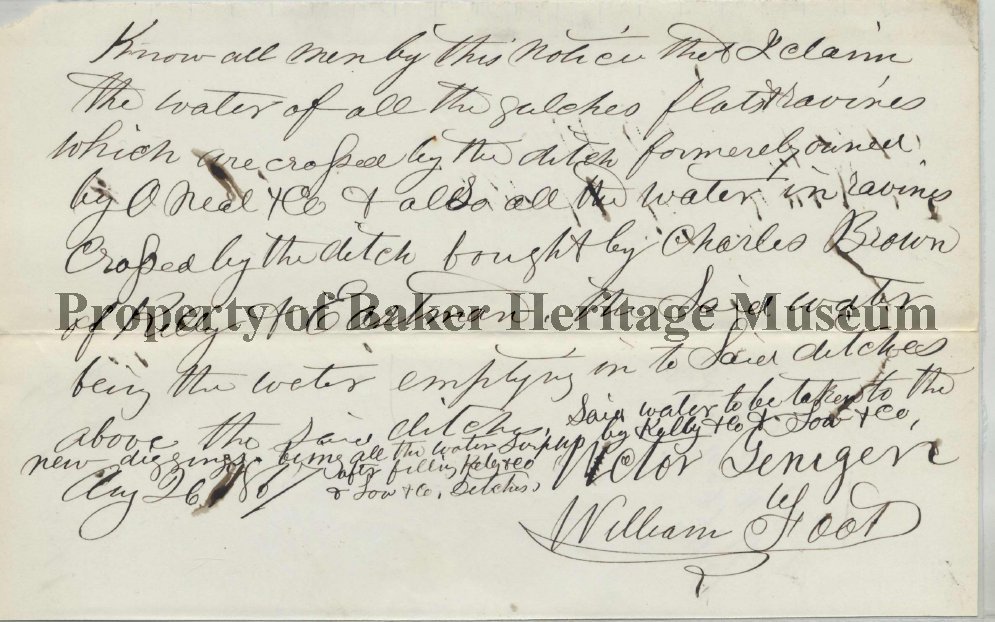 Know all men by this notice that I claim
the water of all the gulches flats & ravines
which are crossed by the ditch formerely owned
by O Neal & Co & also all the water in ravines
Crossed by the ditch bought by Charles Brown
of Kelly & Eastman the Said water
Property of Baker Heritage Museum
being the water emptying in to Said ditches
above the said ditches. Said water to be taken to the
new diggings being all the water by Kelly & Co & Sow & Co,
after filling Kelly & Co
& Sow & Co, Ditches.
Aug 26
Victor
William Foot